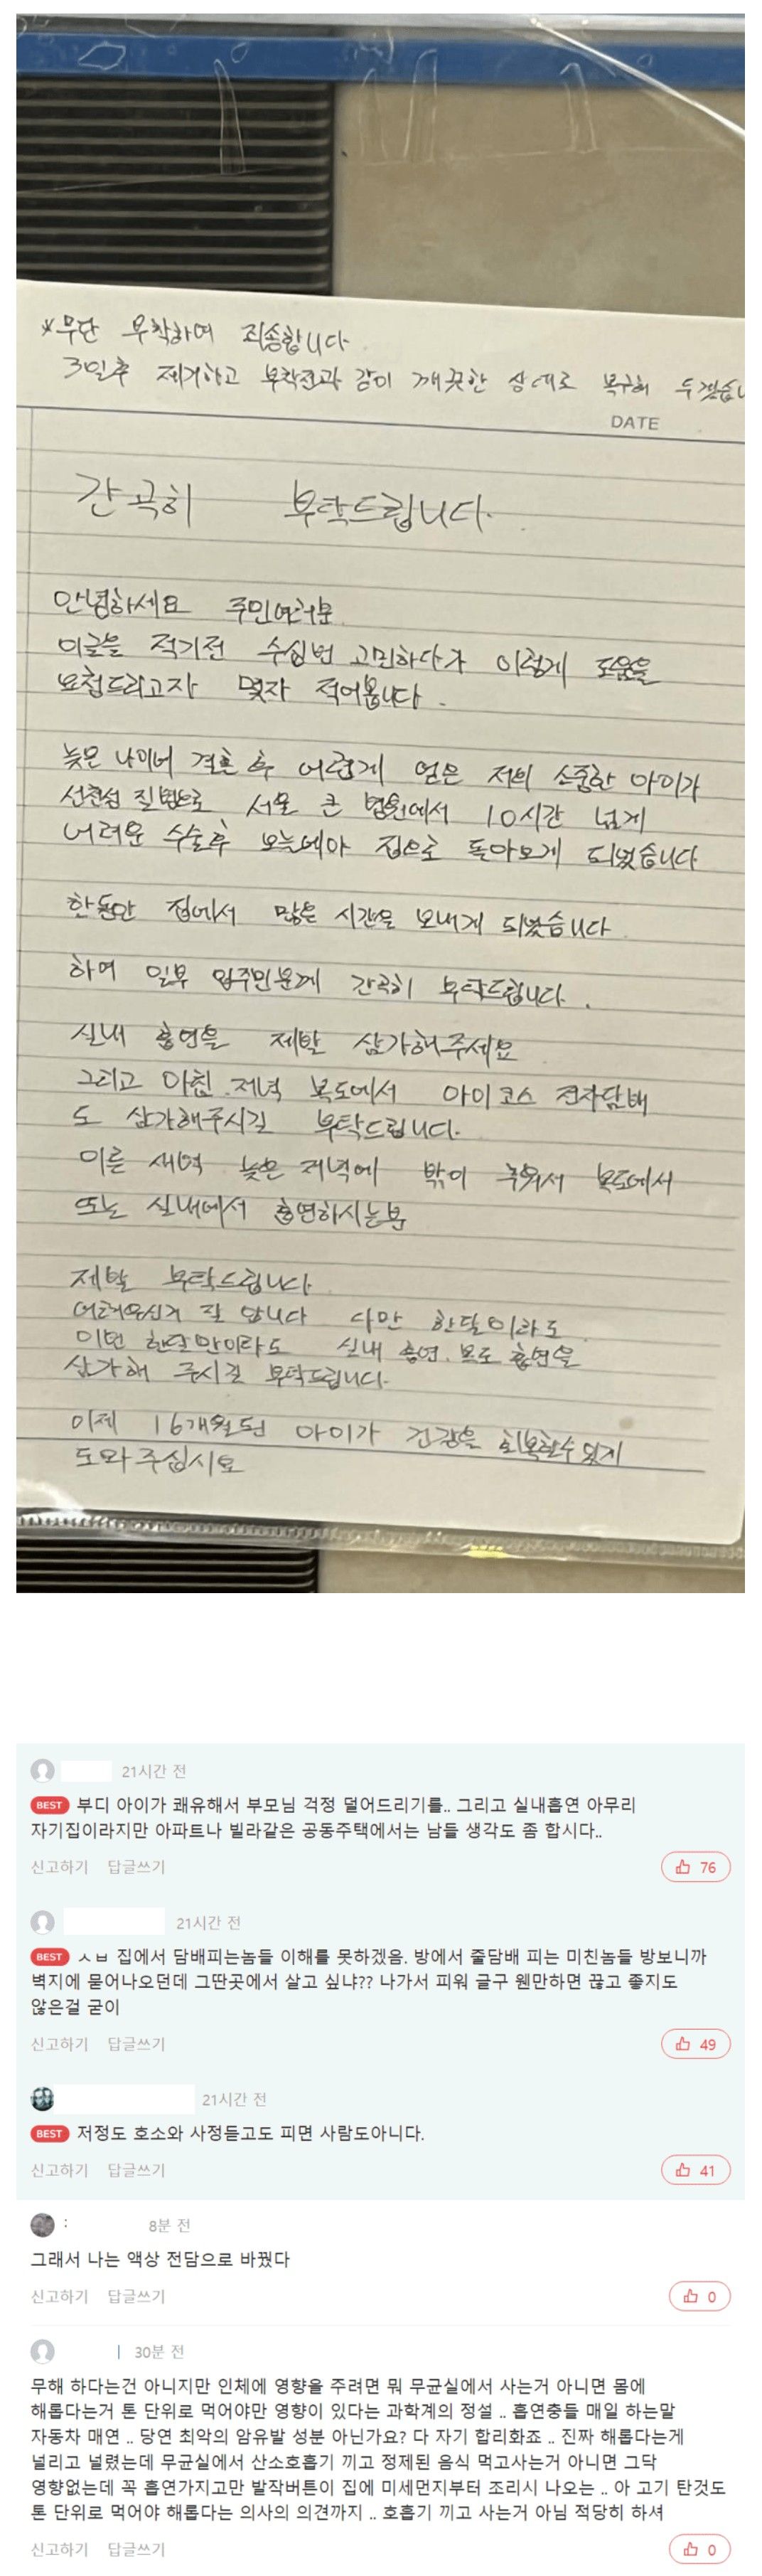 *무단 부착하여 죄송합니다
3일후 제거하고 부착전과 같이 깨끗한 상태로 복구해 두겠습니
DATE
간곡히 부탁드립니다.
안녕하세요 주민여러분
이글을 적기전 수십번 고민하다가 이렇게 도움을
요청드리고자 몇자 적어봅니다.
늦은 나이에 결혼 후 어렵게 얻은 저희 소중한 아이가
선천성 질병으로 서울 큰 병원에서 10시간 넘게
어려운 수술후 오늘에야 집으로 돌아오게 되었습니다
한동안 집에서 많은 시간을 보내게 되었습니다
하여 일부 입주민분께 간곡히 부탁드립니다.
실내 흡연을 제발 삼가해주세요
그리고 아침.저녁 복도에서 아이코스 전자담배
도 삼가해주시길 부탁드립니다.
이른 새벽 늦은 저녁에 밖이 추워서 복도에서
또는 실내에서 흡연하시는분
제발 부탁드립니다
어려우신거 잘 압니다 다만 한달이라도
이번 한달만이라도 실내 흡연.복도 흡연을
삼가해 주시길 부탁드립니다.
이제 16개월된 아이가 건강을 회복할수 있게
도와주십시요
21시간 전
BEST 부디 아이가 쾌유해서 부모님 걱정 덜어드리기를.. 그리고 실내흡연 아무리
자기집이라지만 아파트나 빌라같은 공동주택에서는 남들 생각도 좀 합시다..
신고하기 답글쓰기 76
21시간 전
BEST ㅅㅂ 집에서 담배피는놈들 이해를 못하겠음. 방에서 줄담배 피는 미친놈들 방보니까
벽지에 묻어나오던데 그딴곳에서 살고 싶냐?? 나가서 피워 글구 웬만하면 끊고 좋지도
않은걸 굳이
신고하기 답글쓰기 49
21시간 전
BEST 저정도 호소와 사정듣고도 피면 사람도아니다.
신고하기 답글쓰기 41
: 8분 전
그래서 나는 액상 전담으로 바꿨다
신고하기 답글쓰기 0
30분 전
무해 하다는건 아니지만 인체에 영향을 주려면 뭐 무균실에서 사는거 아니면 몸에
해롭다는거 톤 단위로 먹어야만 영향이 있다는 과학계의 정설 .. 흡연충들 매일 하는말
자동차 매연 .. 당연 최악의 암유발 성분 아닌가요? 다 자기 합리화죠 .. 진짜 해롭다는게
널리고 널렸는데 무균실에서 산소호흡기 끼고 정제된 음식 먹고사는거 아니면 그닥
영향없는데 꼭 흡연가지고만 발작버튼이 집에 미세먼지부터 조리시 나오는 .. 아 고기 탄것도
톤 단위로 먹어야 해롭다는 의사의 의견까지 .. 호흡기 끼고 사는거 아님 적당히 하셔
신고하기 답글쓰기 0